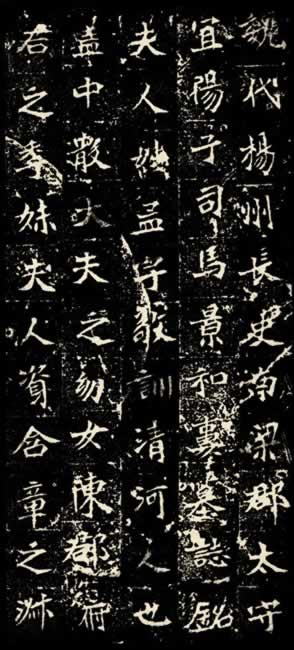 魏代楊州長史南梁郡太守
宜陽子司馬景和妻墓誌銘
夫人姓孟字敬訓清河人也
蓋中散大夫之幼女陳郡府
君之季妹夫人資含章之淑